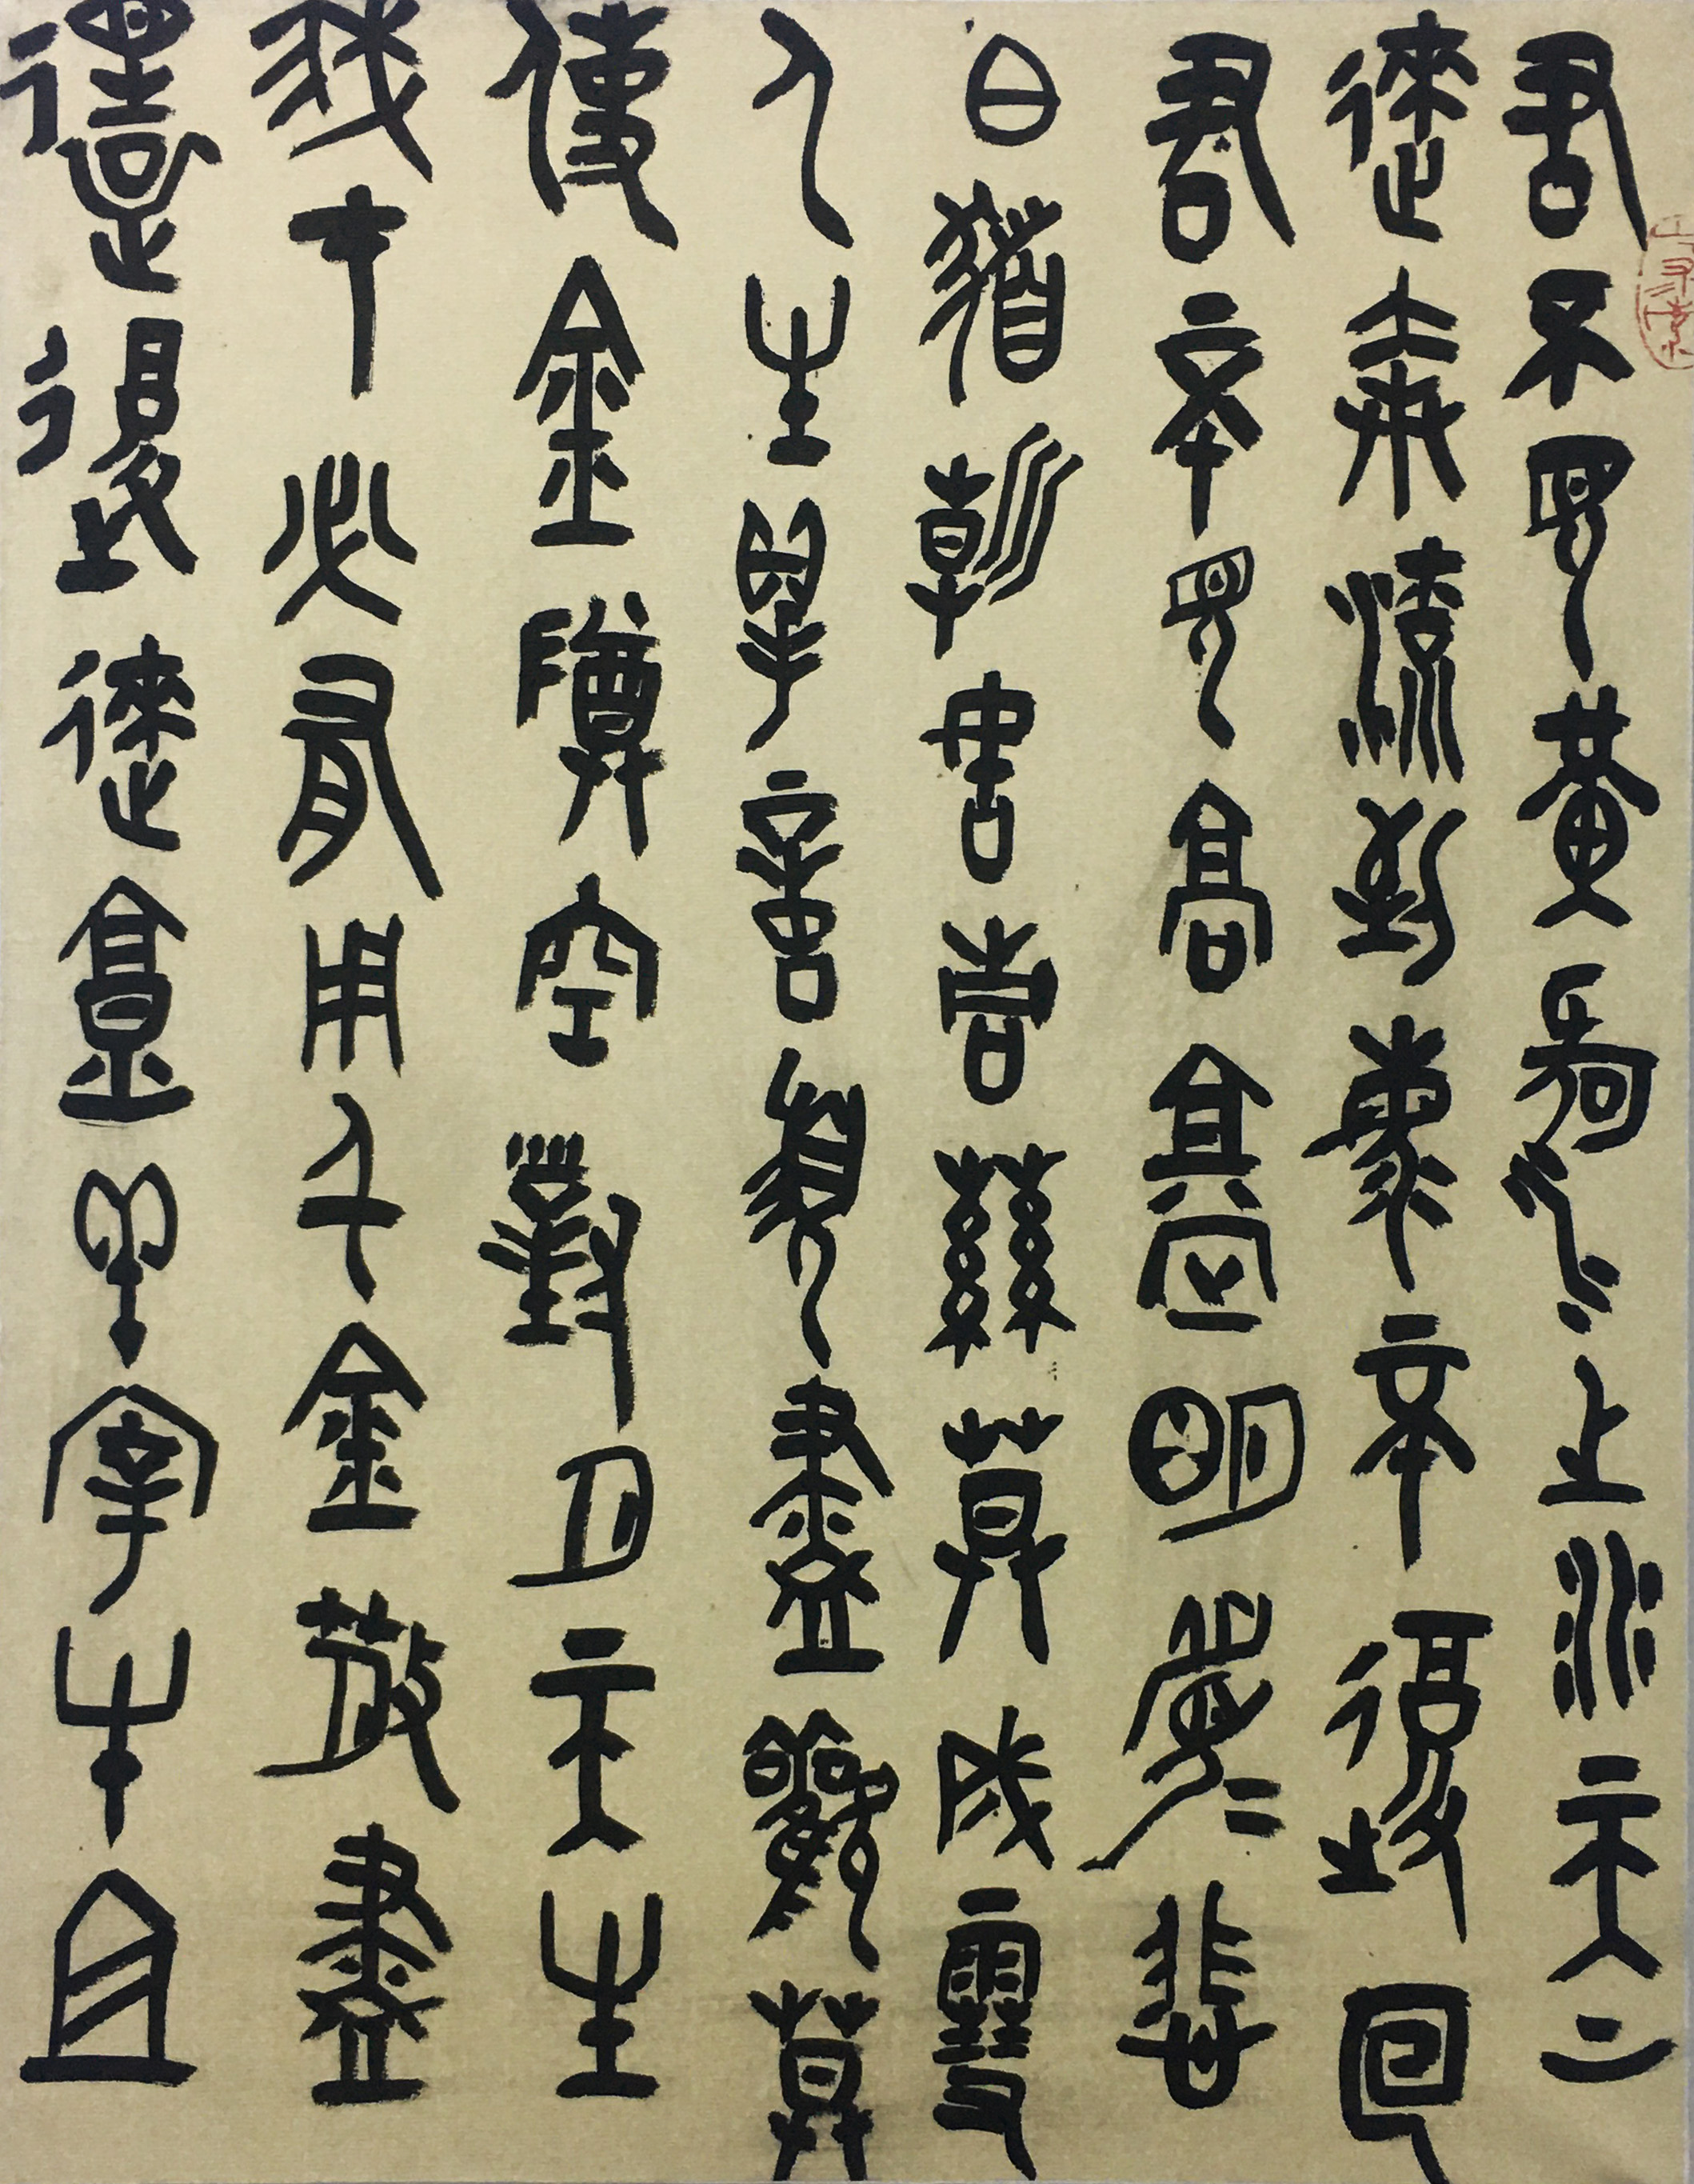 君不見黃河之水天上
來奔流到海不復回
君不見高堂明鏡悲
白髮朝如青絲暮成雪
人生得意須盡歡莫
使金樽空對月天生
我才必有用千金散盡
還復來烹羊宰牛且